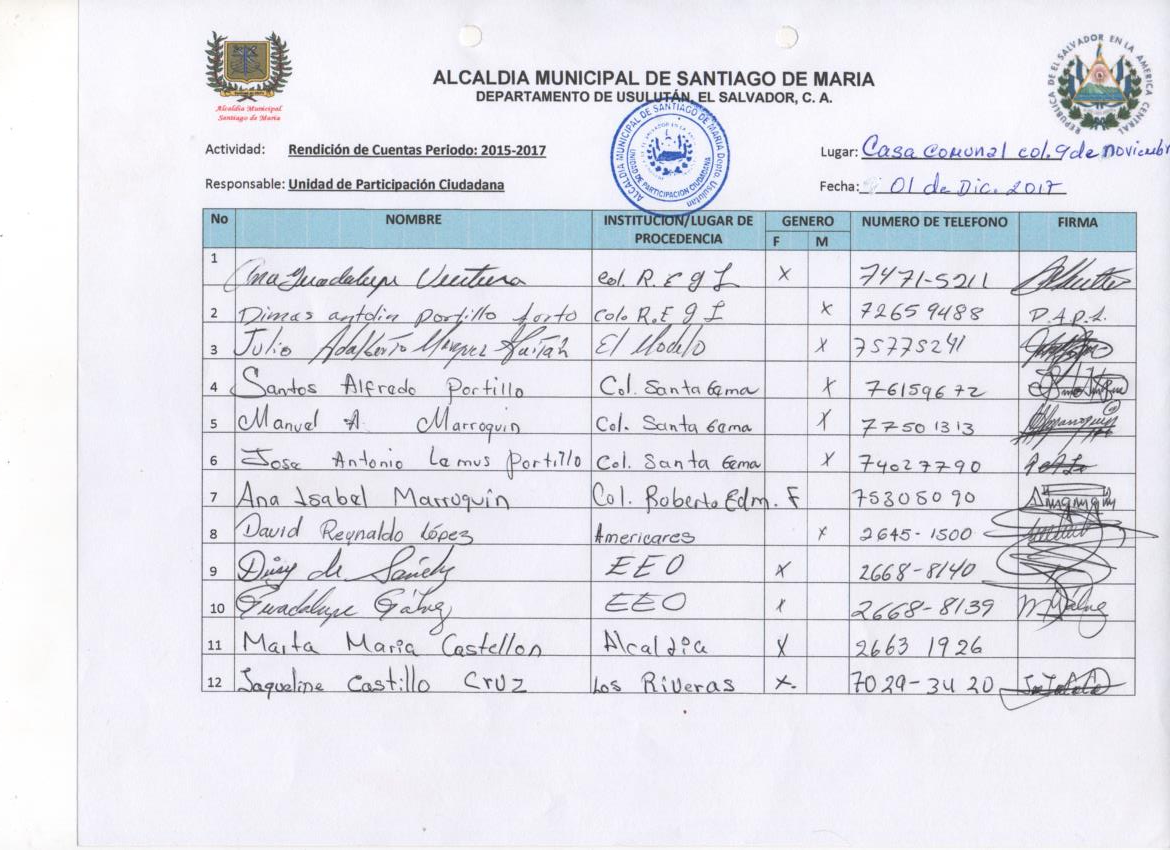 Alcaldía Municipal
Santiago de María
ALCALDIA MUNICIPAL DE SANTIAGO DE MARIA
DEPARTAMENTO DE USULUTÁN, EL SALVADOR, C. A.
REPÚBLICA DE EL SALVADOR EN LA AMERICA CENTRAL
ALCALDIA MUNICIPAL DE SANTIAGO DE MARIA Depto. Usulutan
UNIDAD DE PARTICIPACION CIUDADANA
Actividad: Rendición de Cuentas Periodo: 2015-2017
Lugar: Casa Comunal col. 9 de Noviembr
Responsable: Unidad de Participación Ciudadana
Fecha: 01 de Dic. 2017
No NOMBRE INSTITUCION/LUGAR DE PROCEDENCIA GENERO F M NUMERO DE TELEFONO FIRMA
1 Ana Guadalupe Ventura Col. R. E g L X 7471-5211
2 Dimas antolin portillo Colo R.E g I X 72659488 D.A.P.
3 Julio Adalberto El Modelo X 75775241
4 Santos Alfredo Portillo Col. Santa Gema X 76159672
5 Manuel A. Marroquin Col. Santa Gema X 77501313
6 Jose Antonio Lemus Portillo Col. Santa Gema X 74027790
7 Ana Isabel Marroquín Col. Roberto Edm. F 75305090
8 David Reynaldo López Americares X 2645-1500
9 de EEO X 2668-8140
10 Guadalupe Gálvez EEO X 2668-8139
11 Marta Maria Castellon Alcaldia X 2663 1926
12 Jaqueline Castillo Cruz Los Riveras X. 7029-3420